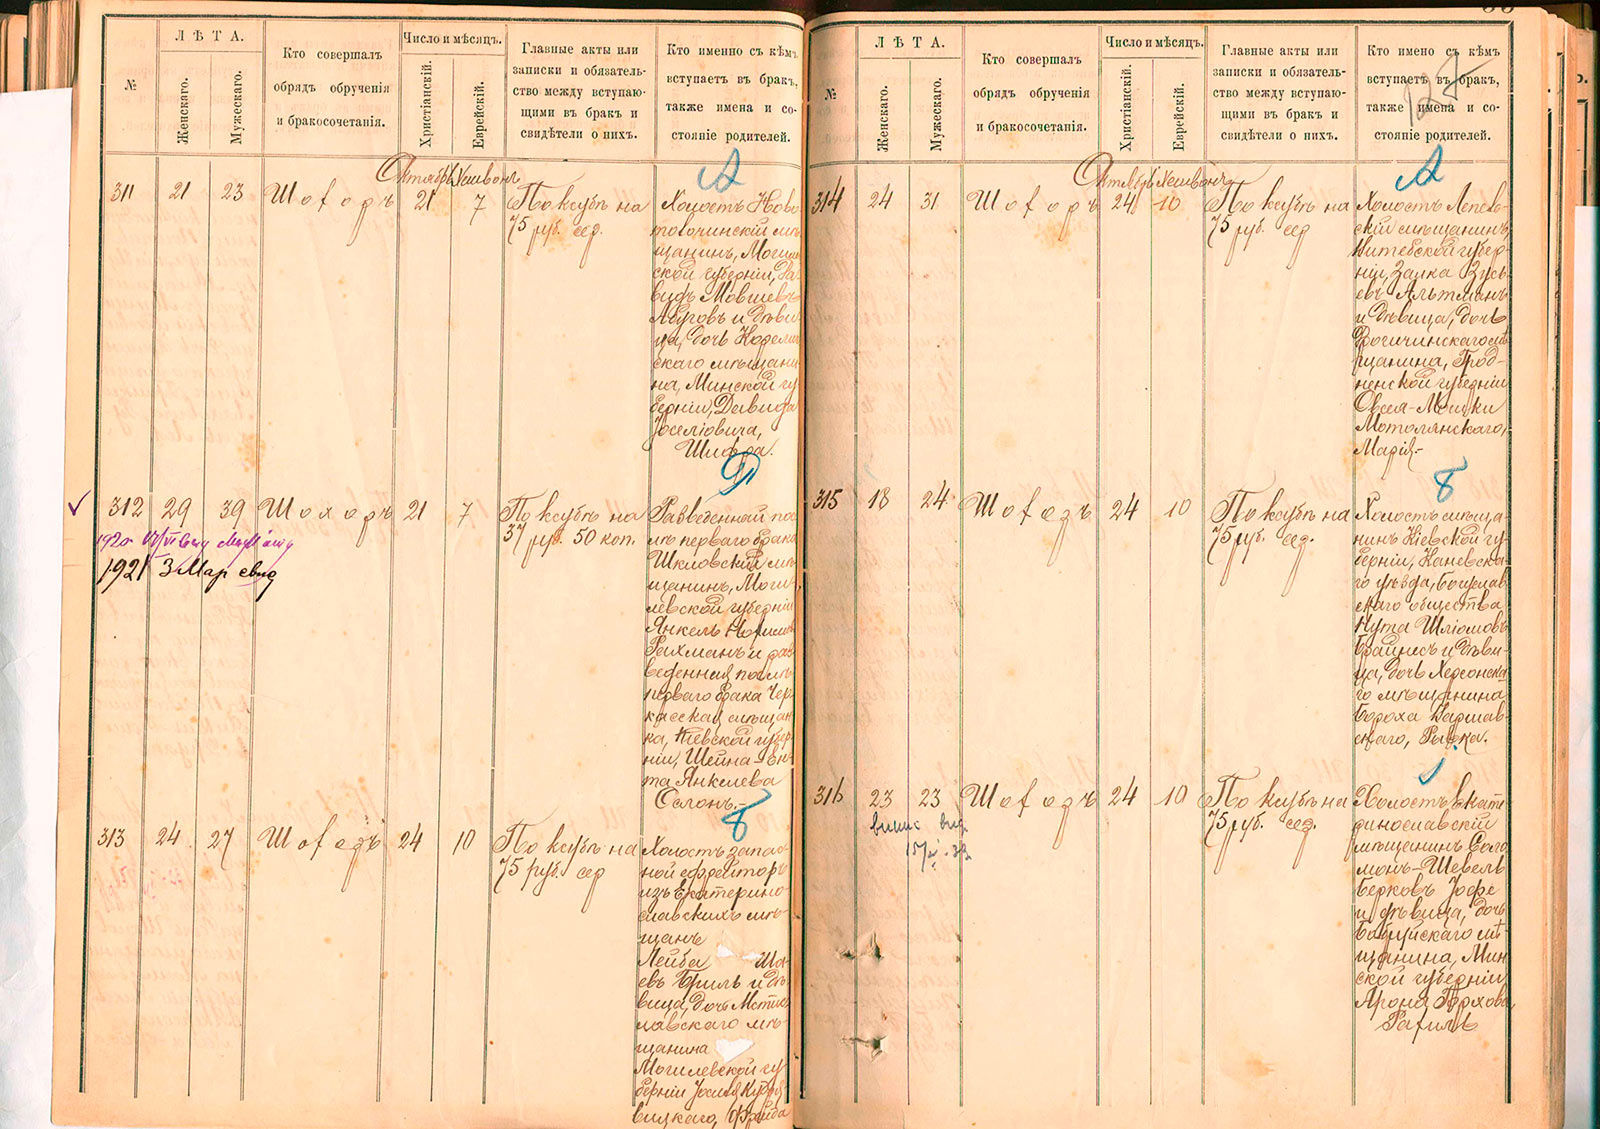 №
ЛѢТА.
Женскаго.
Мужескаго.
Кто совершалъ
обрядъ обрученія
и бракосочетанія.
Число и мѣсяцъ.
Христіанскій.
Еврейскій.
Главные акты или
записки и обязатель-
ство между вступаю-
щими въ бракъ и
свидѣтели о нихъ.
Кто именно съ кѣмъ
вступаетъ въ бракъ,
также имена и со-
стояніе родителей.
Октябрь Хешвонъ
А
311 21 23 Шохоръ 21 7
По ксубѣ на
75 руб. сер.
Холостъ Ново
щанинъ, Могилев
ской губерніи, Да
видъ Мовшевъ
и дѣви
ца, дочь
скаго мѣщани
на, Минской гу
берніи, Давида
Іоселіовича,
Шифра.
312 29 39 Шохоръ 21 7
1920
1921 3 Мар евид
По ксубѣ на
37 руб. 50 коп.
Разведенный по
слѣ перваго брака
Шкловскій мѣ
щанинъ, Моги
левской губерніи
Янкель
Рахманъ и раз
веденная послѣ
перваго брака Чер
касская мѣщан
ка, Кіевской губер
ніи, Шейна-Ен
та Янкелева
313 24 27 Шохоръ 24 10
По ксубѣ на
75 руб. сер
Б
Холостъ запас
ной ефрейторъ
изъ Екатерино
славскихъ мѣ
щанъ
Лейба Ша
евъ Бриль и дѣ
вица, дочь Мсти
лавскаго мѣ
щанина
Могилевской гу
берніи
вицкаго, Фрейда
№
ЛѢТА.
Женскаго.
Мужескаго.
Кто совершалъ
обрядъ обрученія
и бракосочетанія.
Число и мѣсяцъ.
Христіанскій.
Еврейскій.
Главные акты или
записки и обязатель-
ство между вступаю-
щими въ бракъ и
свидѣтели о нихъ.
Кто имено съ кѣмъ
вступаетъ въ бракъ,
также имена и со-
стояніе родителей.
Октябрь Хешвонъ
А
314 24 31 Шохоръ 24 10
По ксубѣ на
75 руб. сер
Холостъ Лепель
скій мѣщанинъ
Витебской губер
ніи, Зусь
евъ Альтманъ
и дѣвица, дочь
Рогичинскаго мѣ
щанина, Грод-
ненской губерніи
Овсея-Мошки
Мотолянскаго,
Марія.-
315 18 24 Шохоръ 24 10
По ксубѣ на
75 руб. сер.
Б
Холостъ мѣща
нинъ Кіевской гу
берніи, Каневска
го уѣзда, Богуслав
скаго общества
Нута Шліомовъ
Брайнисъ и дѣви
ца, дочь Херсонска
го мѣщанина
Бороха Варшав
скаго, Рывка.
316 23 23 Шохоръ 24 10
По ксубѣ на
75 руб. сер.
Холостъ Екате
ринославскій
мѣщанинъ Соло
монъ-Шевель
Берковъ Іофе
и дѣвица, дочь
Бобруйскаго мѣ
щанина, Мин
ской губерніи
Арона
Рахиль